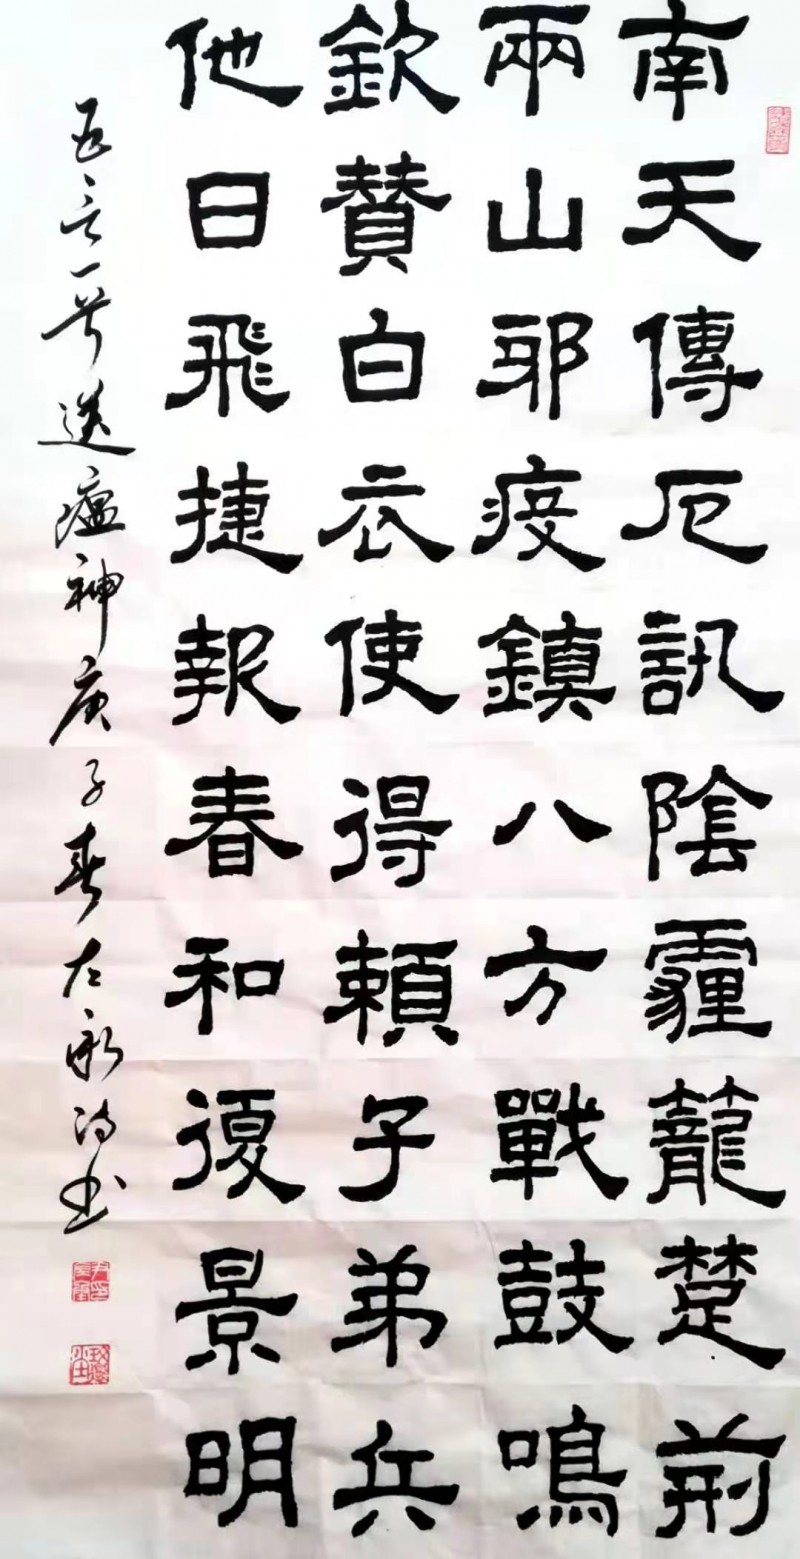 南天傳厄訊陰霾籠楚荊
兩山邪疫鎮八方戰鼓鳴
欽贊白衣使得賴子弟兵
他日飛捷報春和復景明
五言一首送瘟神庚子春左永书